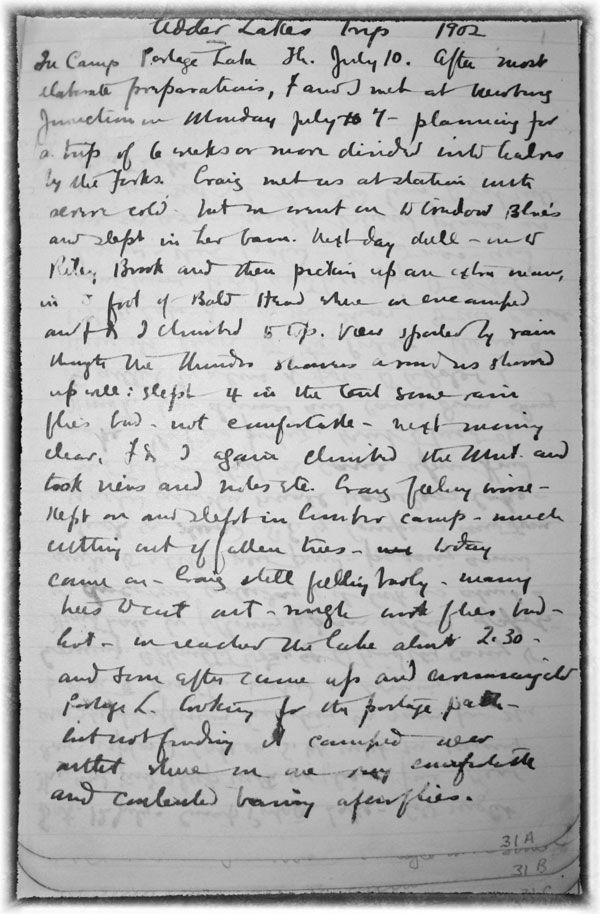 Adder Lakes Trip 1902
In Camp Portage Lake Th. July 10. After most
elaborate preparations, F and I met at Newburg
Junction on Monday July 7 - planning for
a trip of 6 weeks or more divided into halves
by the Forks. Craig met us at station with
severe cold. but we went on to Blue's
and slept in her barn. Next day dull - on to
Riley Brook and then picking up an extra man,
in foot of Bald Head where we encamped
and I climbed to top. View spoiled by rain
though the thunder showers around us showed
up well: slept 4 in the tent some rain
flies bad - not comfortable - next morning
clear, F & I again climbed the Mt. and
took views and notes etc. Craig feeling worse -
kept on and slept in lumber camp - much
cutting out of fallen trees - today
came on - Craig still feeling badly - many
trees to cut out - rough work flies bad -
hot - we reached the lake about 2.30 -
and soon after came up and
Portage L. looking for the portage path -
but not finding it camped near
outlet where we are very comfortable
and contented barring a few flies.
31A
31B
31C